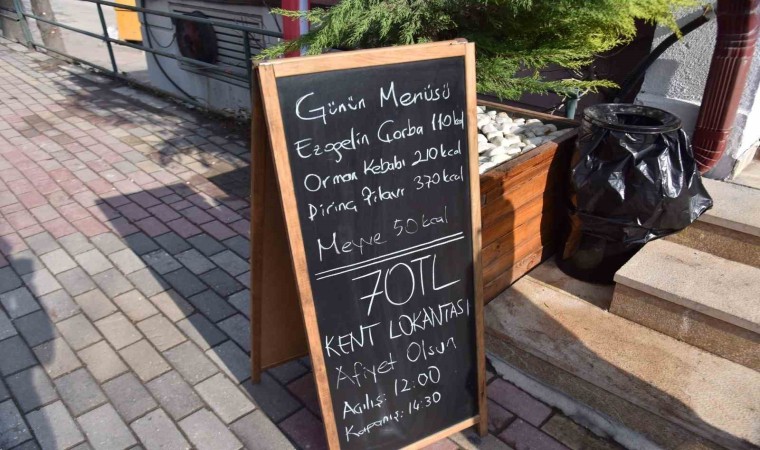 Günün Menüsü
Ezogelin Çorba 170 kcal
Orman Kebabı 210 kcal
Pirinç Pilavı 370 kcal
Meyve 50 kcal
70TL
KENT LOKANTASI
Afiyet Olsun
Açılış: 12:00
Kapanış: 14:30